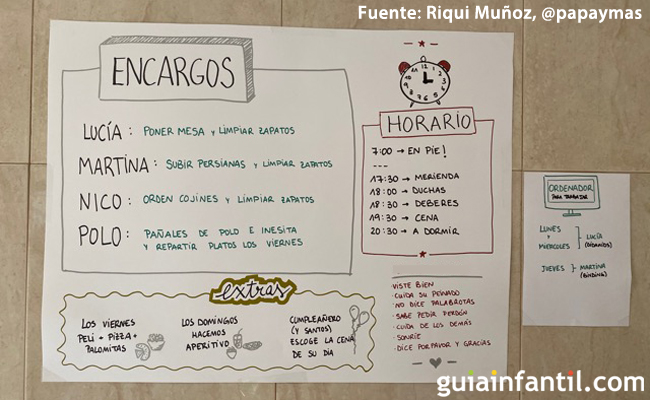 Fuente: Riqui Muñoz, @papaymas
ENCARGOS
LUCÍA: PONER MESA Y LIMPIAR ZAPATOS
MARTINA: SUBIR PERSIANAS Y LIMPIAR ZAPATOS
NICO: ORDEN COJINES Y LIMPIAR ZAPATOS
POLO: PAÑALES DE POLO E INESITA
Y REPARTIR PLATOS LOS VIERNES
HORARIO
7:00 → EN PIE!
---
17:30 → MERIENDA
18:00 → DUCHAS
18:30 → DEBERES
19:30 → CENA
20:30 → A DORMIR
ORDENADOR
PARA TRABAJAR
LUNES
Y
MIERCOLES
LUCÍA
JUEVES } MARTINA
extras
LOS VIERNES
PELI + PIZZA +
PALOMITAS
LOS DOMINGOS
HACEMOS
APERITIVO
CUMPLEAÑERO
(Y SANTOS)
ESCOGE LA CENA
DE SU DÍA
·VISTE BIEN
·CUIDA SU PEINADO
·NO DICE PALABROTAS
·SABE PEDIR PERDÓN
·CUIDA DE LOS DEMÁS
·SONRÍE
·DICE POR FAVOR Y GRACIAS
guiainfantil.com